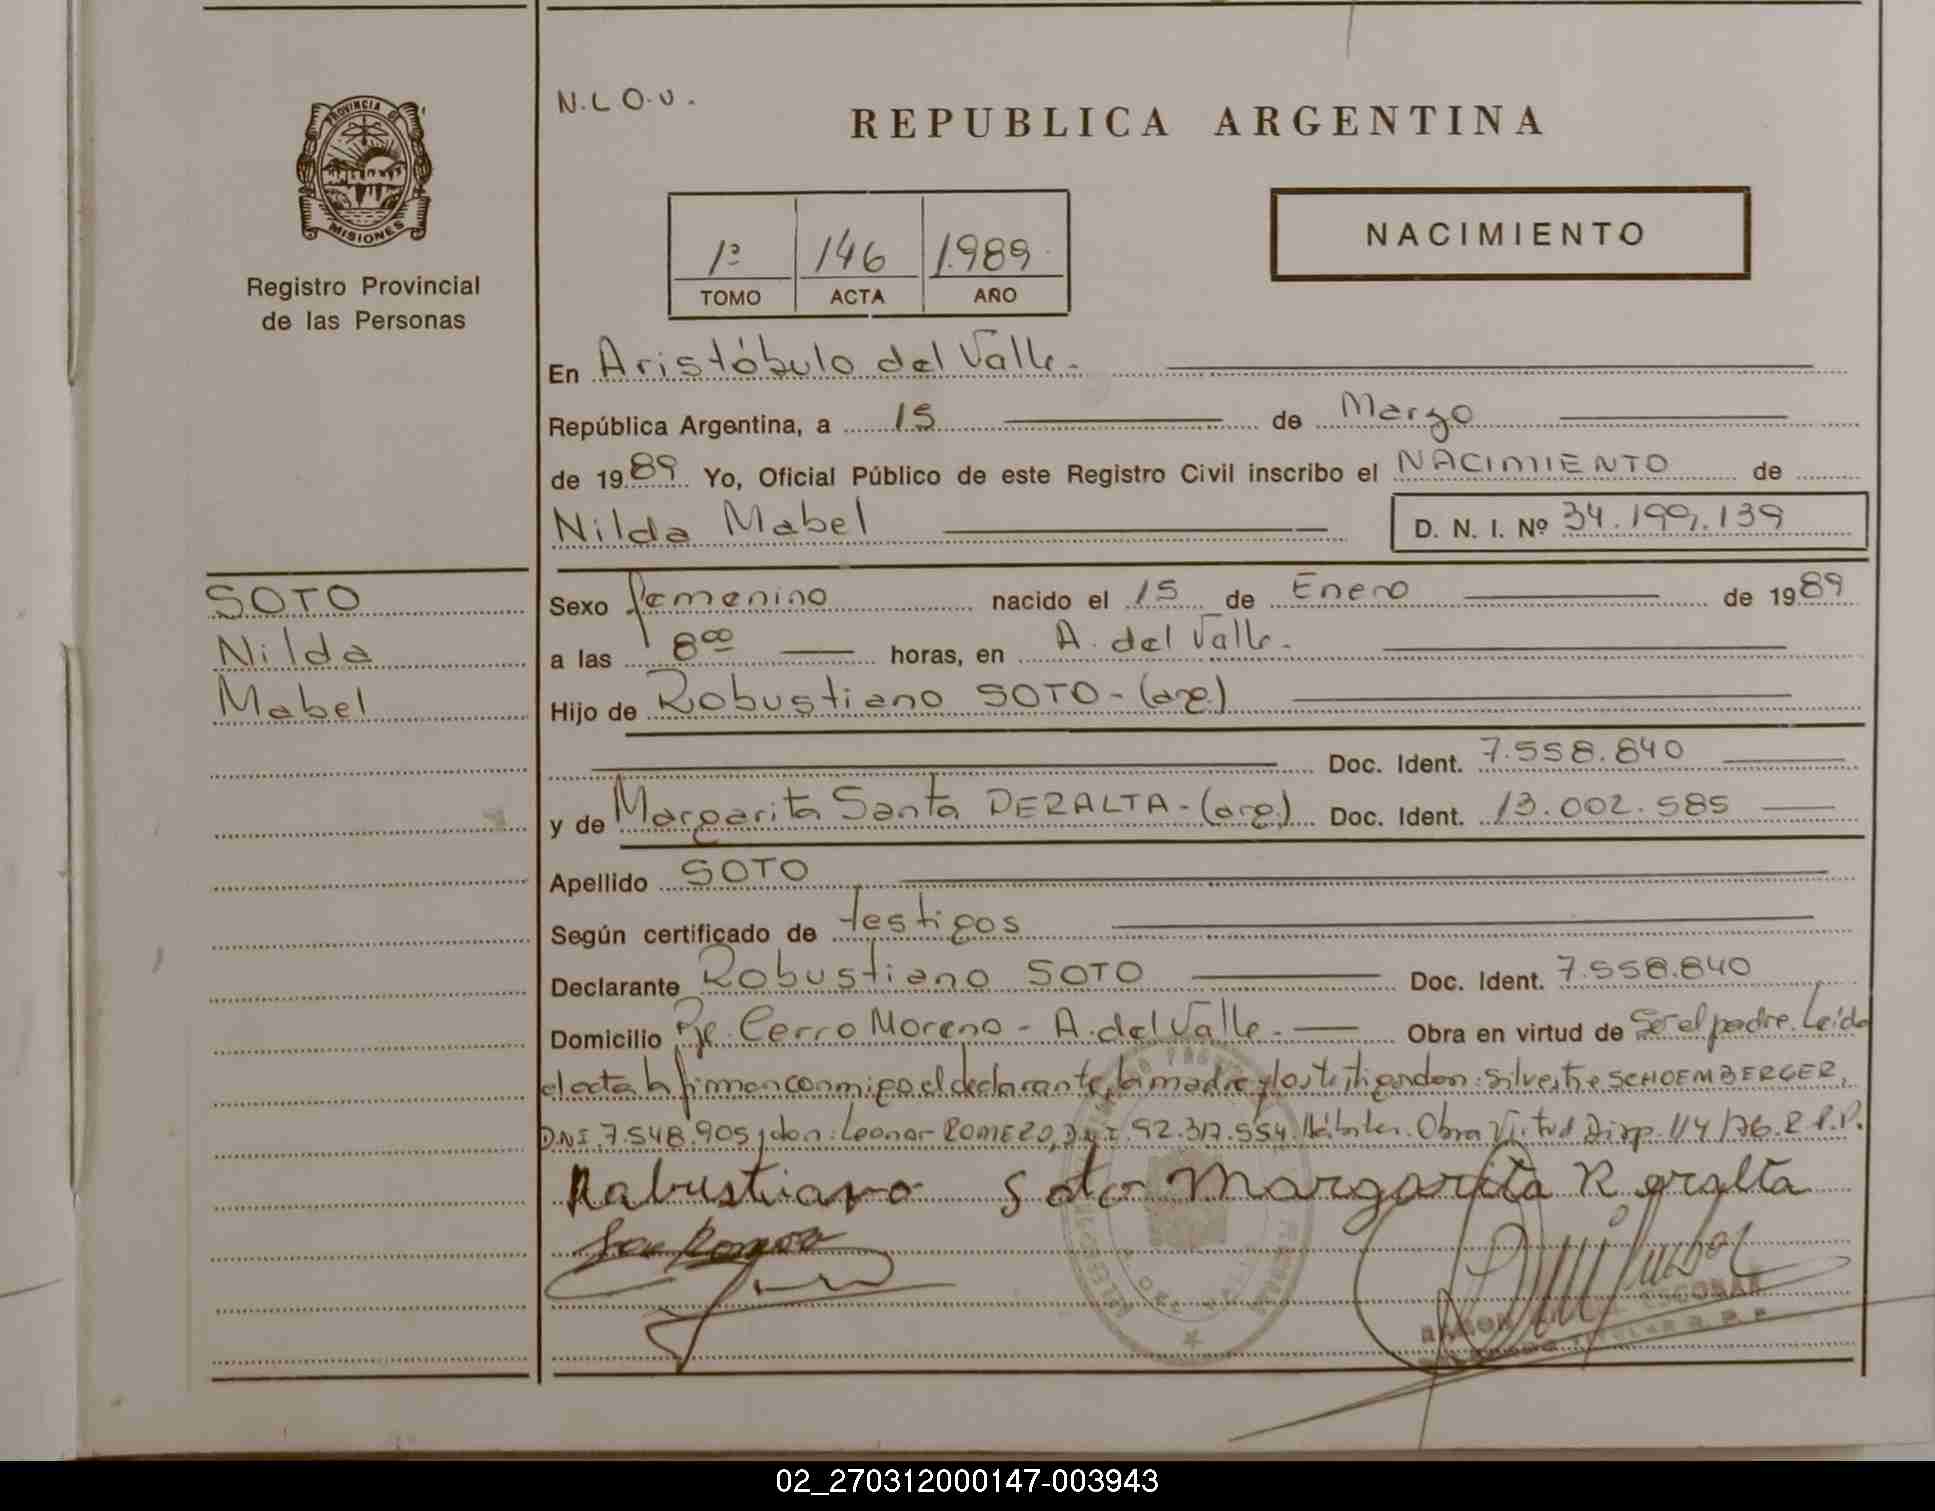 N.L.O.U.
REPUBLICA ARGENTINA
PROVINCIA DE
MISIONES
Registro Provincial
de las Personas
1º 146 1.989
TOMO ACTA AÑO
NACIMIENTO
En Aristóbulo del Valle.
República Argentina, a 15 de Marzo
de 1989 Yo, Oficial Público de este Registro Civil inscribo el NACIMIENTO de
Nilda Mabel D. N. I. Nº 34.199.139
SOTO
Nilda
Mabel
Sexo femenino nacido el 15 de Enero de 1989
a las 8⁰⁰ horas, en A. del Valle.
Hijo de Robustiano SOTO-(arg.)
Doc. Ident. 7.558.840
y de Margarita Santa PERALTA-(arg.) Doc. Ident. 13.002.585
Apellido SOTO
Según certificado de testigos
Declarante Robustiano SOTO Doc. Ident. 7.558.840
Domicilio Pje. Cerro Moreno - A. del Valle. Obra en virtud de Ser el padre. Leída
el acta la firman conmigo el declarante, la madre y los testigos don: Silvestre SCHOEMBERGER,
D.N.I. 7.548.905 y don: Leonor ROMERO, D.N.I. 92.317.554. Hábiles. Obra Virtud Disp. 114/76. R.P.P.
Rabustiano Soto Margarita Peralta
ESCOBAR
TITULAR R. P. P.
02_270312000147-003943